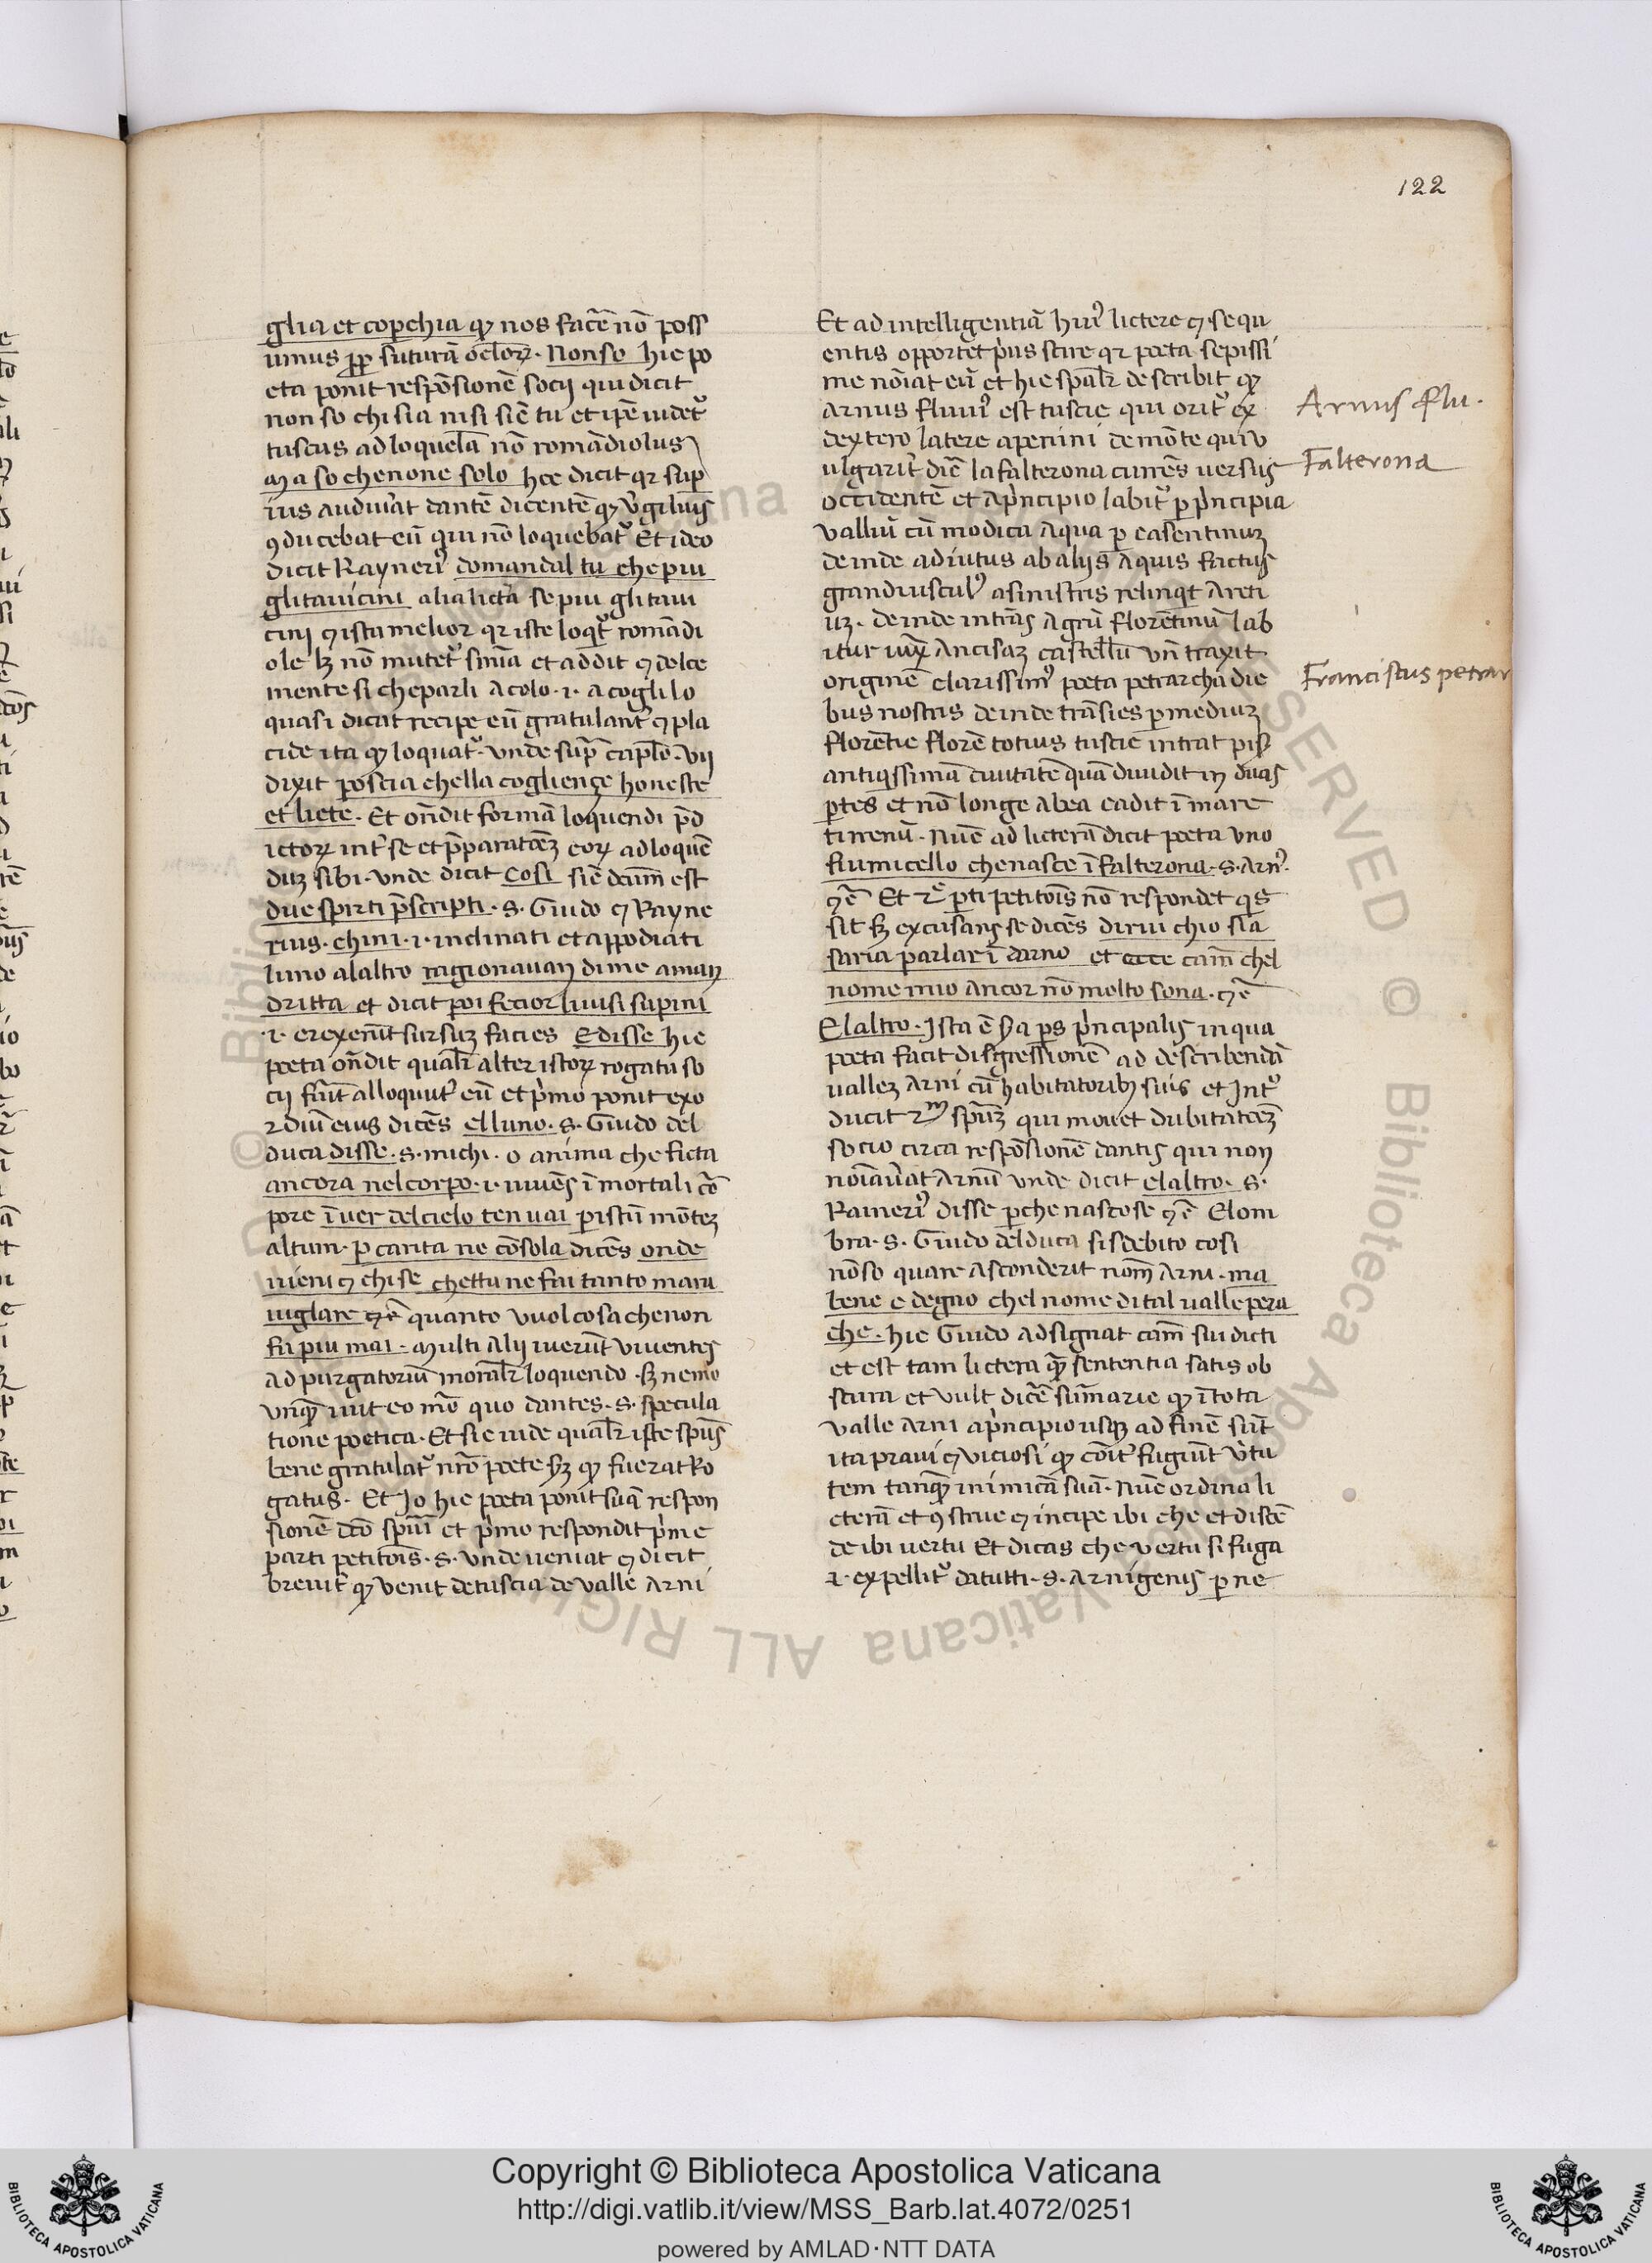 122
glia et coperchia qȝ nos facẽ nõ poss
umus ꝓpꝑ suturã ocloꝝ. Non so hic po
eta ponit respõsionẽ socij qui dicit
non so chi sia nisi siẽ tu et ipẽ uidetᷣ
tuscus ad loquelã nõ romãdiolus
ma so che non e solo hec dicit qꝛ sup
ius audiuat dantẽ dicentẽ qȝ v̓giliuȝ
ꝯducebat eũ qui nõ loquebatᷣ Et ideo
dicit Raynerꝰ domandal tu che piu
gli tauicini alia licta se piu gli taui
cini ⁊ ista melior qꝛ iste loqtᷣ romãdi
ole lȝ nõ mutetᷣ sniã et addit ⁊ dolce
mente si che parli acolo .i. acoglilo
quasi dicat recipe eũ gratulantᷣ ⁊ pla
cide ita qȝ loquatᷣ. vnde supᷓ caplo. vij
dixit poscia che lla coglienze honeste
et liete. Et oñdit formã loquendi p̃d
ictoꝝ intᷣ se et p̃paratõeȝ eoꝝ ad loquẽ
duȝ sibi. vnde dicit Cosi siẽ dcũm est
due spirti p̃scripti. s. Guido ⁊ Rayne
rius. chini .i. inclinati et appodiati
luno alaltro ragionauan di me a man
dritta et dicit poi fecior li uisi supini
.i. erexerũt sursuȝ facies E disse hic
poeta oñdit qualr̃ alter istoꝝ rogatu so
cij faũt alloquitᷣ eũ et p̓mo ponit exo
rdiũ eius dicẽs el luno. s. Guido del
duca disse. s. michi. o anima che ficta
ancora nel corpo .i. uiuẽs ĩ mortali cõ
pore ĩ uer del cielo ten uai ꝑ istũ mõteȝ
altum. ꝑ carita ne cõsola dicẽs onde
uieni ⁊ chi se che ttu ne fai tanto mara
uiglare ⁊cẽ quanto vuol cosa che non
fu piu mai. multi alij iuerũt viuentes
ad purgatoriũ moralr̃ loquendo. sȝ nemo
vnqᷓȝ iuit eo mõ quo dantes. s. specula
tione poetica. Et sic uide qualr̃ iste spũs
bene gratulatᷣ nr̃o poete sȝ qȝ fuerat ro
gatus. Et Jo hic poeta ponit suã respon
sionẽ dcõ spũi et p̓mo respondit p̓me
parti petitõis. s. vnde ueniat ⁊ dicit
breuitᷣ qȝ venit de tuscia de valle Arni
Et ad intelligentiã huiꝰ lictere ⁊ sequ
entis opportet p̓us scire qꝛ poeta sepissi
me nõiat eũ et hic spalr̃ describit qȝ
arnus fluuiꝰ est tuscie qui oritᷣ ex
dextero latere apenini de mõte qui v
ulgaritᷣ diẽ la falterona currẽs uersus
occidentẽ et a p̓ncipio labitᷣ ꝑ p̓ncipia
valliũ cũ modica aqua ꝑ casentinuȝ
deinde adiutus ab alijs aquis factus
grandiusculꝰ a sinistris relinqt areti
uȝ. deinde intrãs agrũ florẽtinũ lab
itur iuxᷓ Ancisaȝ castellũ vñ traxit
originẽ clarissimꝰ poeta petrarcha die
bus nostris deinde trãsies ꝑ mediuȝ
florẽtie florẽ totius tuscie intrat pis
antiqissimã ciuitatẽ quã diuidit in duas
ꝑtes et nõ longe ab ea cadit ĩ mare
tirrenũ. Nũc ad licterã dicit poeta vno
fiumicello che nasce ĩ falterona. s. Arnꝰ.
⁊cẽ Et 2ᵉ ꝑti petitõis nõ respondet qis
sit sȝ excusans se dicẽs dirui chio sia
saria parlar ĩ darno et ecce cam̃ chel
nome mio ancor nõ molto sona. ⁊cẽ
El altro. Jsta ẽ s̃a ꝑs p̓ncipalis in qua
poeta facit disgressionẽ ad describendã
valleȝ arni cũ habitatoribȝ suis et Jntᷣo
ducit 2ᵐ spũȝ qui mouet dubitatõeȝ
socio circa respõsionẽ dantis qui non
noiauat Arnũ vnde dicit el altro. s.
Rainerꝰ disse ꝑche nascose ⁊cẽ E lom
bra. s. Guido del duca si sdebito cosi
nõ so quare asconderit nom̃ Arni. ma
bene e degno chel nome di tal ualle pera
che. hic Guido adsignat cam̃ sui dicti
et est tam lictera qᷓȝ sententia satis ob
scura et vult dicẽ sũmarie qȝ ĩ tota
valle Arni a p̓ncipio usqȝ ad finẽ sũt
ita praui ⁊ viciosi qȝ cõitᷣ fugiũt v̓tu
tem tanqᷓȝ inimicã suã. Nũc ordina li
cterã et ꝯstrue ⁊ incipe ibi che et discẽ
de ibi uertu Et dicas che vertu si fuga
.i. expellitᷣ da tutti. s. arnigenis ꝑ ne
Arnus flu.
Falterona
Franciscus petrar
Copyright © Biblioteca Apostolica Vaticana
http://digi.vatlib.it/view/MSS_Barb.lat.4072/0251
powered by AMLAD·NTT DATA
BIBLIOTECA APOSTOLICA VATICANA
BIBLIOTECA APOSTOLICA VATICANA